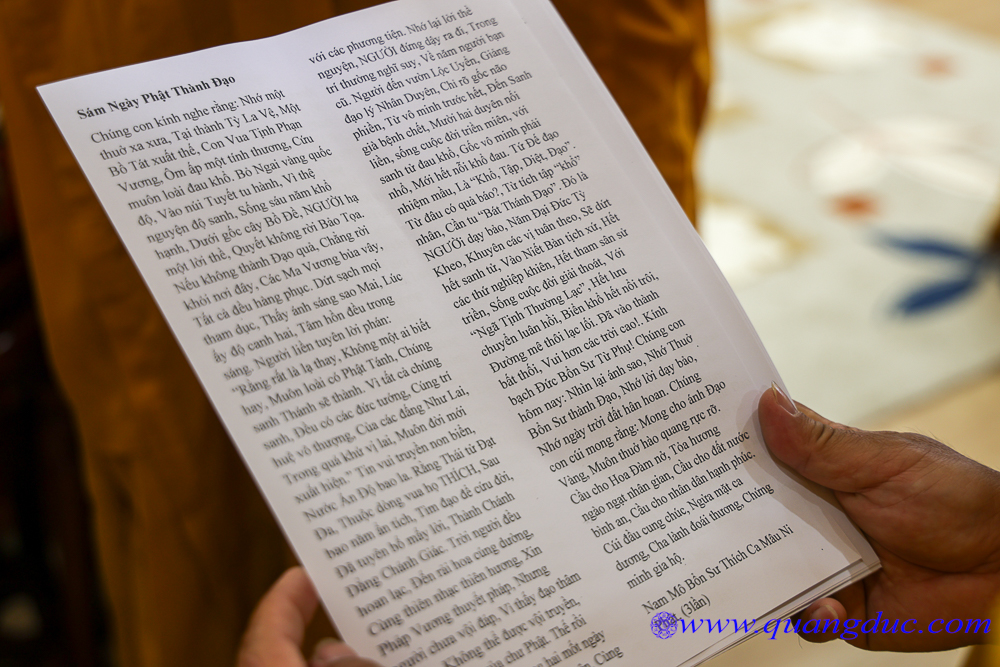 Sám Ngày Phật Thành Đạo
Chúng con kính nghe rằng: Nhớ một
thuở xa xưa, Tại thành Tỳ La Vệ, Một
Bồ Tát xuất thế, Con Vua Tịnh Phạn
Vương, Ôm ấp một tình thương, Cứu
muôn loài đau khổ. Bỏ Ngai vàng quốc
độ, Vào núi Tuyết tu hành, Vì thệ
nguyện độ sanh, Sống sáu năm khổ
hạnh. Dưới gốc cây Bồ Đề, NGƯỜI hạ
một lời thề, Quyết không rời Bảo Tọa.
Nếu không thành Đạo quả, Chẳng rời
khỏi nơi đây, Các Ma Vương bủa vây,
Tất cả đều hàng phục. Dứt sạch mọi
tham dục, Thấy ánh sáng sao Mai, Lúc
ấy độ canh hai, Tâm hồn đều trong
sáng. Người liền tuyên lời phán:
“Rằng rất là lạ thay, Không một ai biết
hay, Muôn loài có Phật Tánh, Chúng
sanh Thánh sẽ thành. Vì tất cả chúng
sanh, Đều có các đức tướng, Cùng trí
huệ vô thượng, Của các đấng Như Lai,
Trong quá khứ vị lai, Muôn đời mới
xuất hiện.” Tin vui truyền non biển,
Nước Ấn Độ bao la. Rằng Thái tử Đạt
Đa, Thuộc dòng vua họ THÍCH, Sau
bao năm ẩn tích, Tìm đạo để cứu đời,
Đã tuyên bố mấy lời, Thành Chánh
Đẳng Chánh Giác. Trời người đều
hoan lạc, Đến rải hoa cúng dường,
Cùng thiên nhạc thiên hương, Xin
Pháp Vương thuyết pháp, Nhưng
người chưa vội đáp, Vì thấy đạo thâm
Không thể được vội truyền,
của chư Phật. Thế rồi
hai mốt ngày
Cùng
với các phương tiện. Nhớ lại lời thề
nguyện, NGƯỜI đứng dậy ra đi, Trong
trí thường nghĩ suy, Về năm người bạn
cũ. Người đến vườn Lộc Uyển, Giảng
đạo lý Nhân Duyên, Chỉ rõ gốc não
phiền, Từ vô minh trước hết. Đến Sanh
già bệnh chết, Mười hai duyên nối
liền, sống cuộc đời triền miên, với
sanh tử đau khổ, Gốc vô minh phải
nhổ, Mới hết nỗi khổ đau. Tứ Đế đạo
nhiệm mầu, Là “Khổ, Tập, Diệt, Đạo”.
Từ đâu có quả báo?. Từ tích tập “khổ”
nhân, Cần tu “Bát Thánh Đạo”. Đó là
NGƯỜI dạy bảo, Năm Đại Đức Tỳ
Kheo, Khuyên các vị tuân theo, Sẽ dứt
hết sanh tử, Vào Niết Bàn tịch xử, Hết
các thứ nghiệp khiên, Hết tham sân sử
triền, Sống cuộc đời giải thoát, Với
“Ngã Tịnh Thường Lạc”, Hết lưu
chuyển luân hồi, Biển khổ hết nổi trôi,
Đường mê thôi lạc lối. Đã vào thành
bất thối, Vui hơn các trời cao!. Kính
bạch Đức Bổn Sư Từ Phụ! Chúng con
hôm nay: Nhìn lại ánh sao, Nhớ Thuở
Bổn Sư thành Đạo, Nhớ lời dạy bảo,
Nhớ ngày trời đất hân hoan. Chúng
con cúi mong rằng: Mong cho ánh Đạo
Vàng, Muôn thuở hào quang rực rỡ.
Cầu cho Hoa Đàm nở, Tỏa hương
ngào ngạt nhân gian, Cầu cho đất nước
bình an, Cầu cho nhân dân hạnh phúc.
Cúi đầu cung chúc, Ngửa mặt ca
dương, Cha lành đoái thương, Chúng
minh gia hộ.
Nam Mô Bổn Sư Thích Ca Mâu Ni
(3lần)
www.quangduc.com